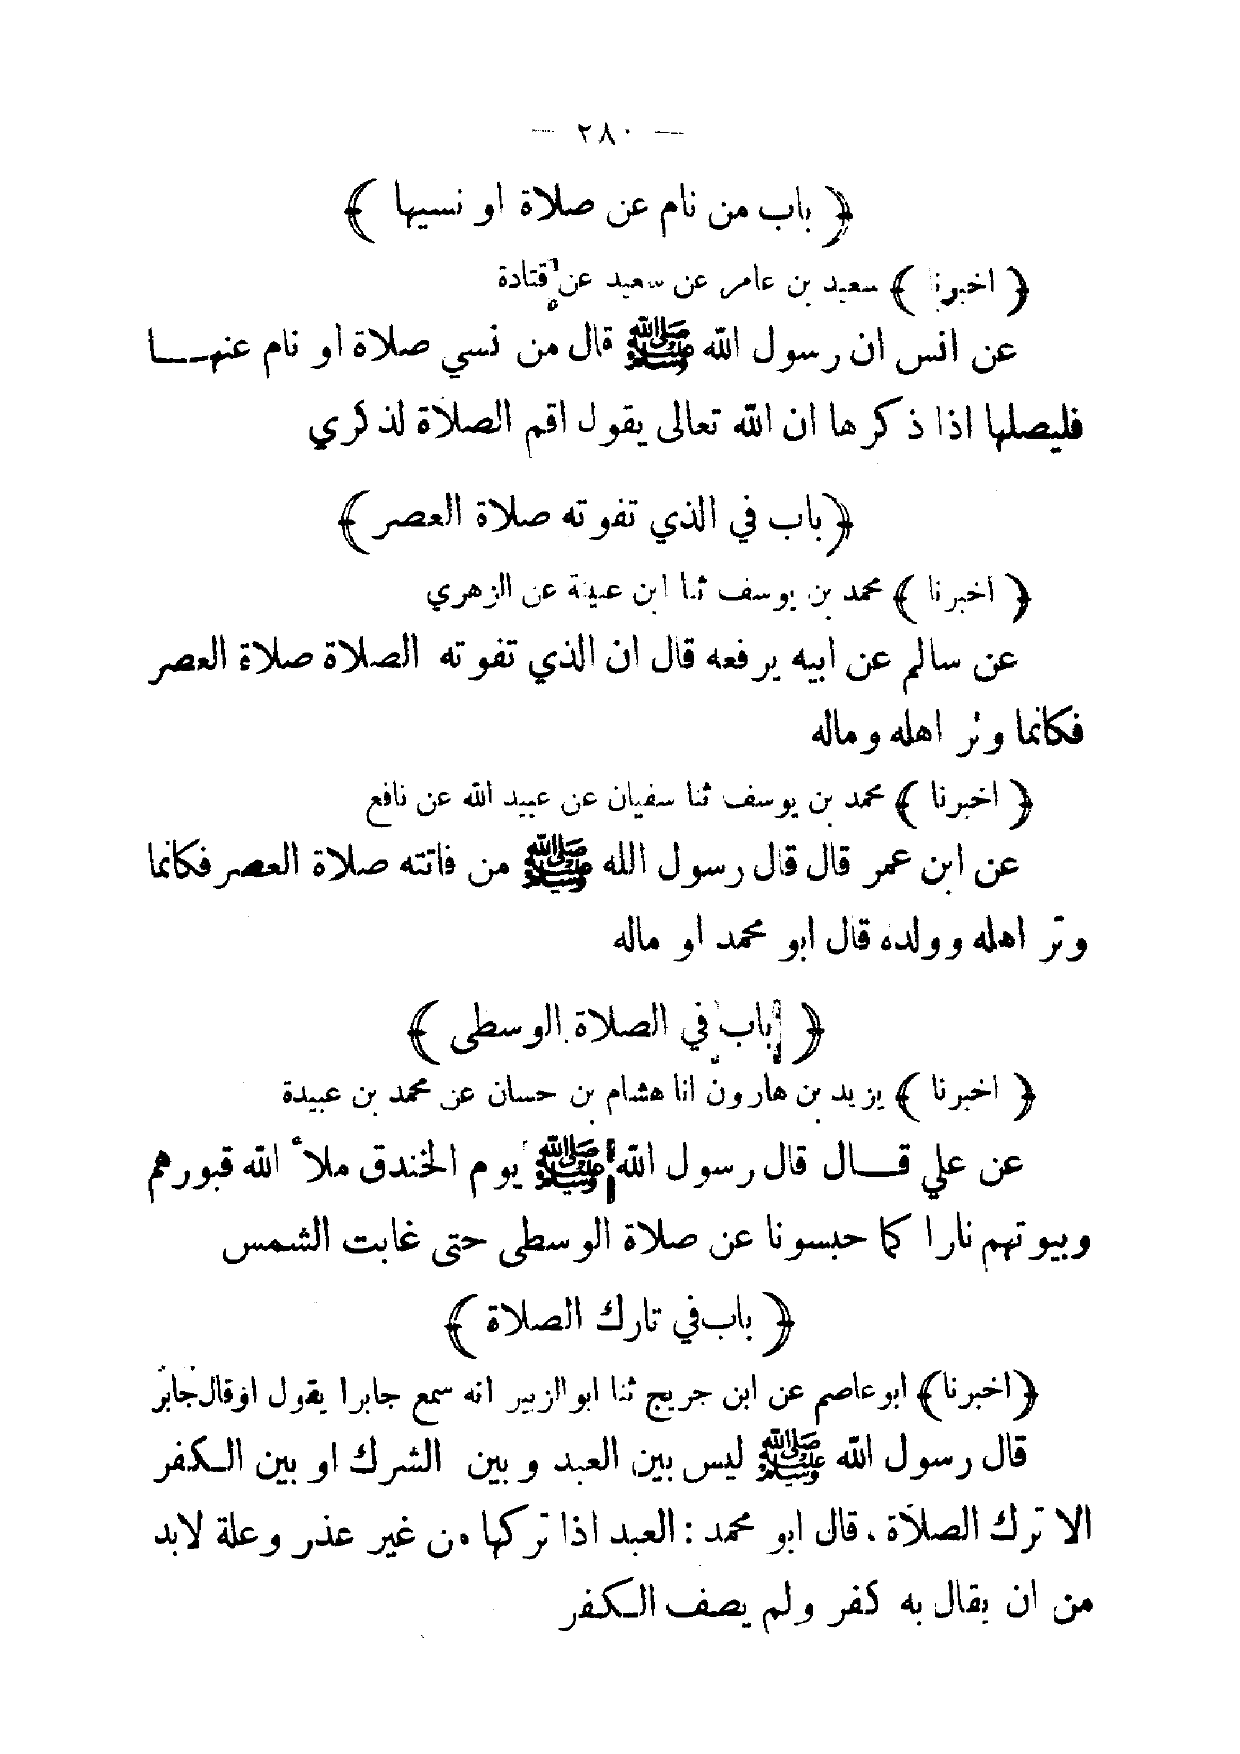 — ٢٨٠ —
﴿ باب من نام عن صلاة او نسيها ﴾
﴿ اخبرنا ﴾ سعيد بن عامر عن سعيد عن قتادة
عن انس ان رسول الله ﷺ قال من نسي صلاة او نام عنهـــا
فليصلها اذا ذكرها ان الله تعالى يقول اقم الصلاة لذكري
﴿باب في الذي تفوته صلاة العصر﴾
﴿ اخبرنا ﴾ محمد بن يوسف ثنا ابن عيينة عن الزهري
عن سالم عن ابيه يرفعه قال ان الذي تفوته الصلاة صلاة العصر
فكانما وتر اهله وماله
﴿ اخبرنا ﴾ محمد بن يوسف ثنا سفيان عن عبيد الله عن نافع
عن ابن عمر قال قال رسول الله ﷺ من فاتته صلاة العصر فكانما
وتر اهله وولده قال ابو محمد او ماله
﴿ باب في الصلاة الوسطى ﴾
﴿ اخبرنا ﴾ يزيد بن هارون انا هشام بن حسان عن محمد بن عبيدة
عن علي قـــال قال رسول الله ﷺ يوم الخندق ملأ الله قبورهم
وبيوتهم نارا كما حبسونا عن صلاة الوسطى حتى غابت الشمس
﴿ باب في تارك الصلاة ﴾
﴿اخبرنا﴾ ابو عاصم عن ابن جريج ثنا ابو الزبير انه سمع جابرا يقول اوقال جابر
قال رسول الله ﷺ ليس بين العبد وبين الشرك او بين الـكفر
الا ترك الصلاة . قال ابو محمد : العبد اذا تركها من غير عذر وعلة لابد
من ان يقال به كفر ولم يصف الـكفر